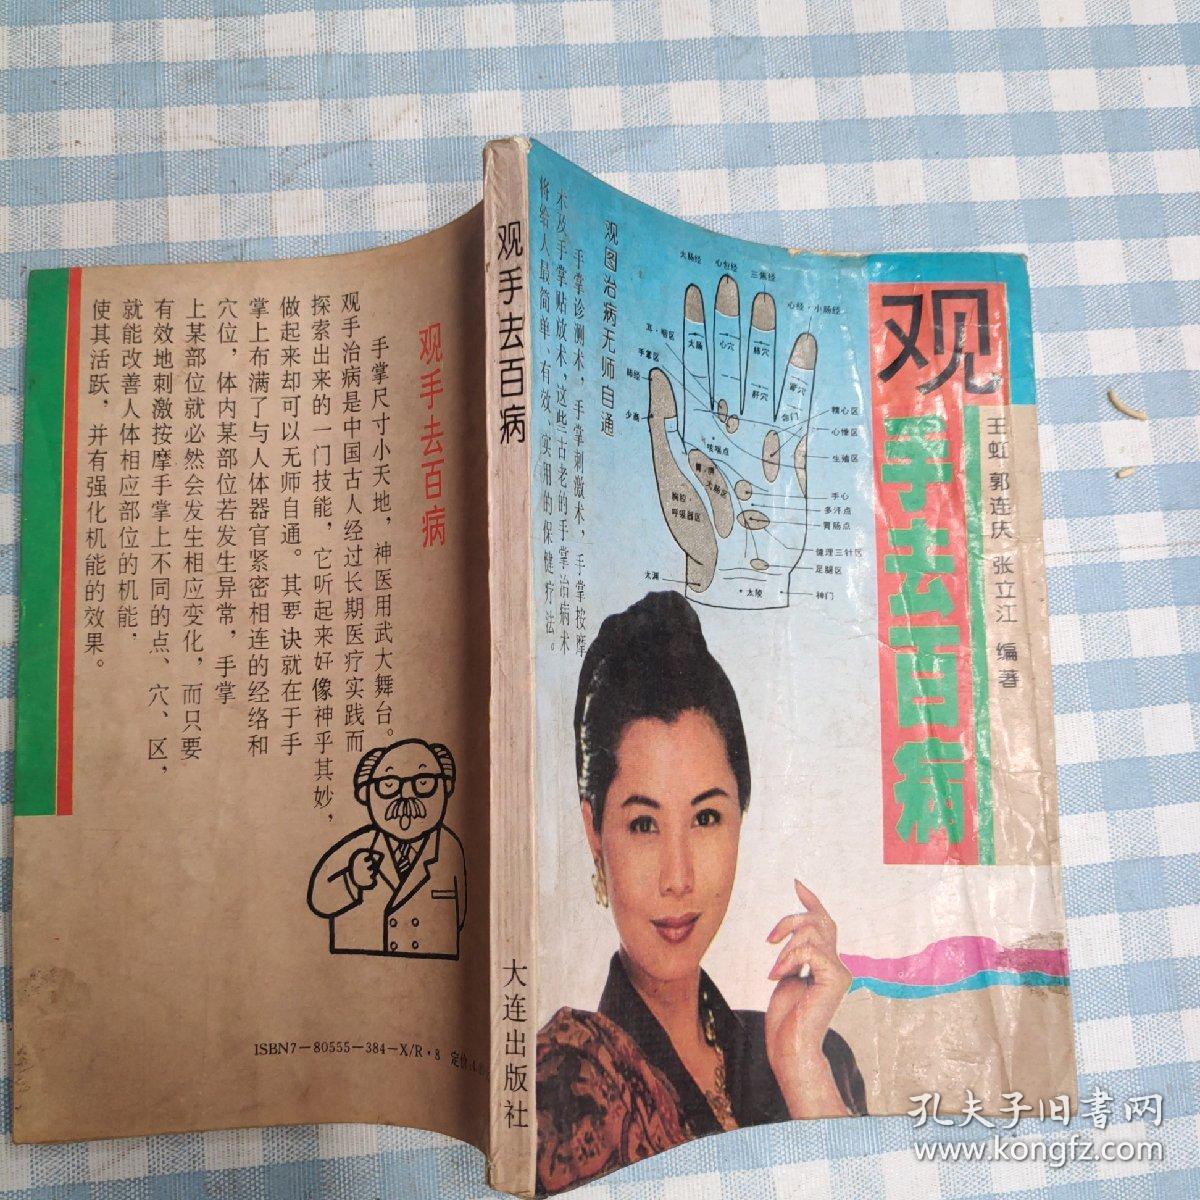 观手去百病
手掌尺寸小天地，神医用武大舞台。
观手治病是中国古人经过长期医疗实践而
探索出来的一门技能，它听起来好像神乎其妙，
做起来却可以无师自通。其要诀就在于手
掌上布满了与人体器官紧密相连的经络和
穴位，体内某部位若发生异常，手掌
上某部位就必然会发生相应变化，而只要
有效地刺激按摩手掌上不同的点、穴、区，
就能改善人体相应部位的机能，
使其活跃，并有强化机能的效果。
ISBN7-80555-384-X/R·8
定价
观手去百病
大连出版社
观手去百病
王虹 郭连庆 张立江 编著
观图治病无师自通
手掌诊测术，手掌刺激术，手掌按摩
术及手掌贴放术，这些古老的手掌治病术
将给人最简单、有效、实用的保健疗法。
大肠经
心包经
三焦经
心经·小肠经
耳·咽区
手掌区
肺经
少商
大肠
心穴
肺穴
肝穴
肾穴
命门
精心区
心悸区
生殖区
咳喘点
大肠区
胸腔·
呼吸器区
手心
多汗点
胃肠点
健理三针区
足腿区
太渊
太陵
神门
孔夫子旧书网
www.kongfz.com